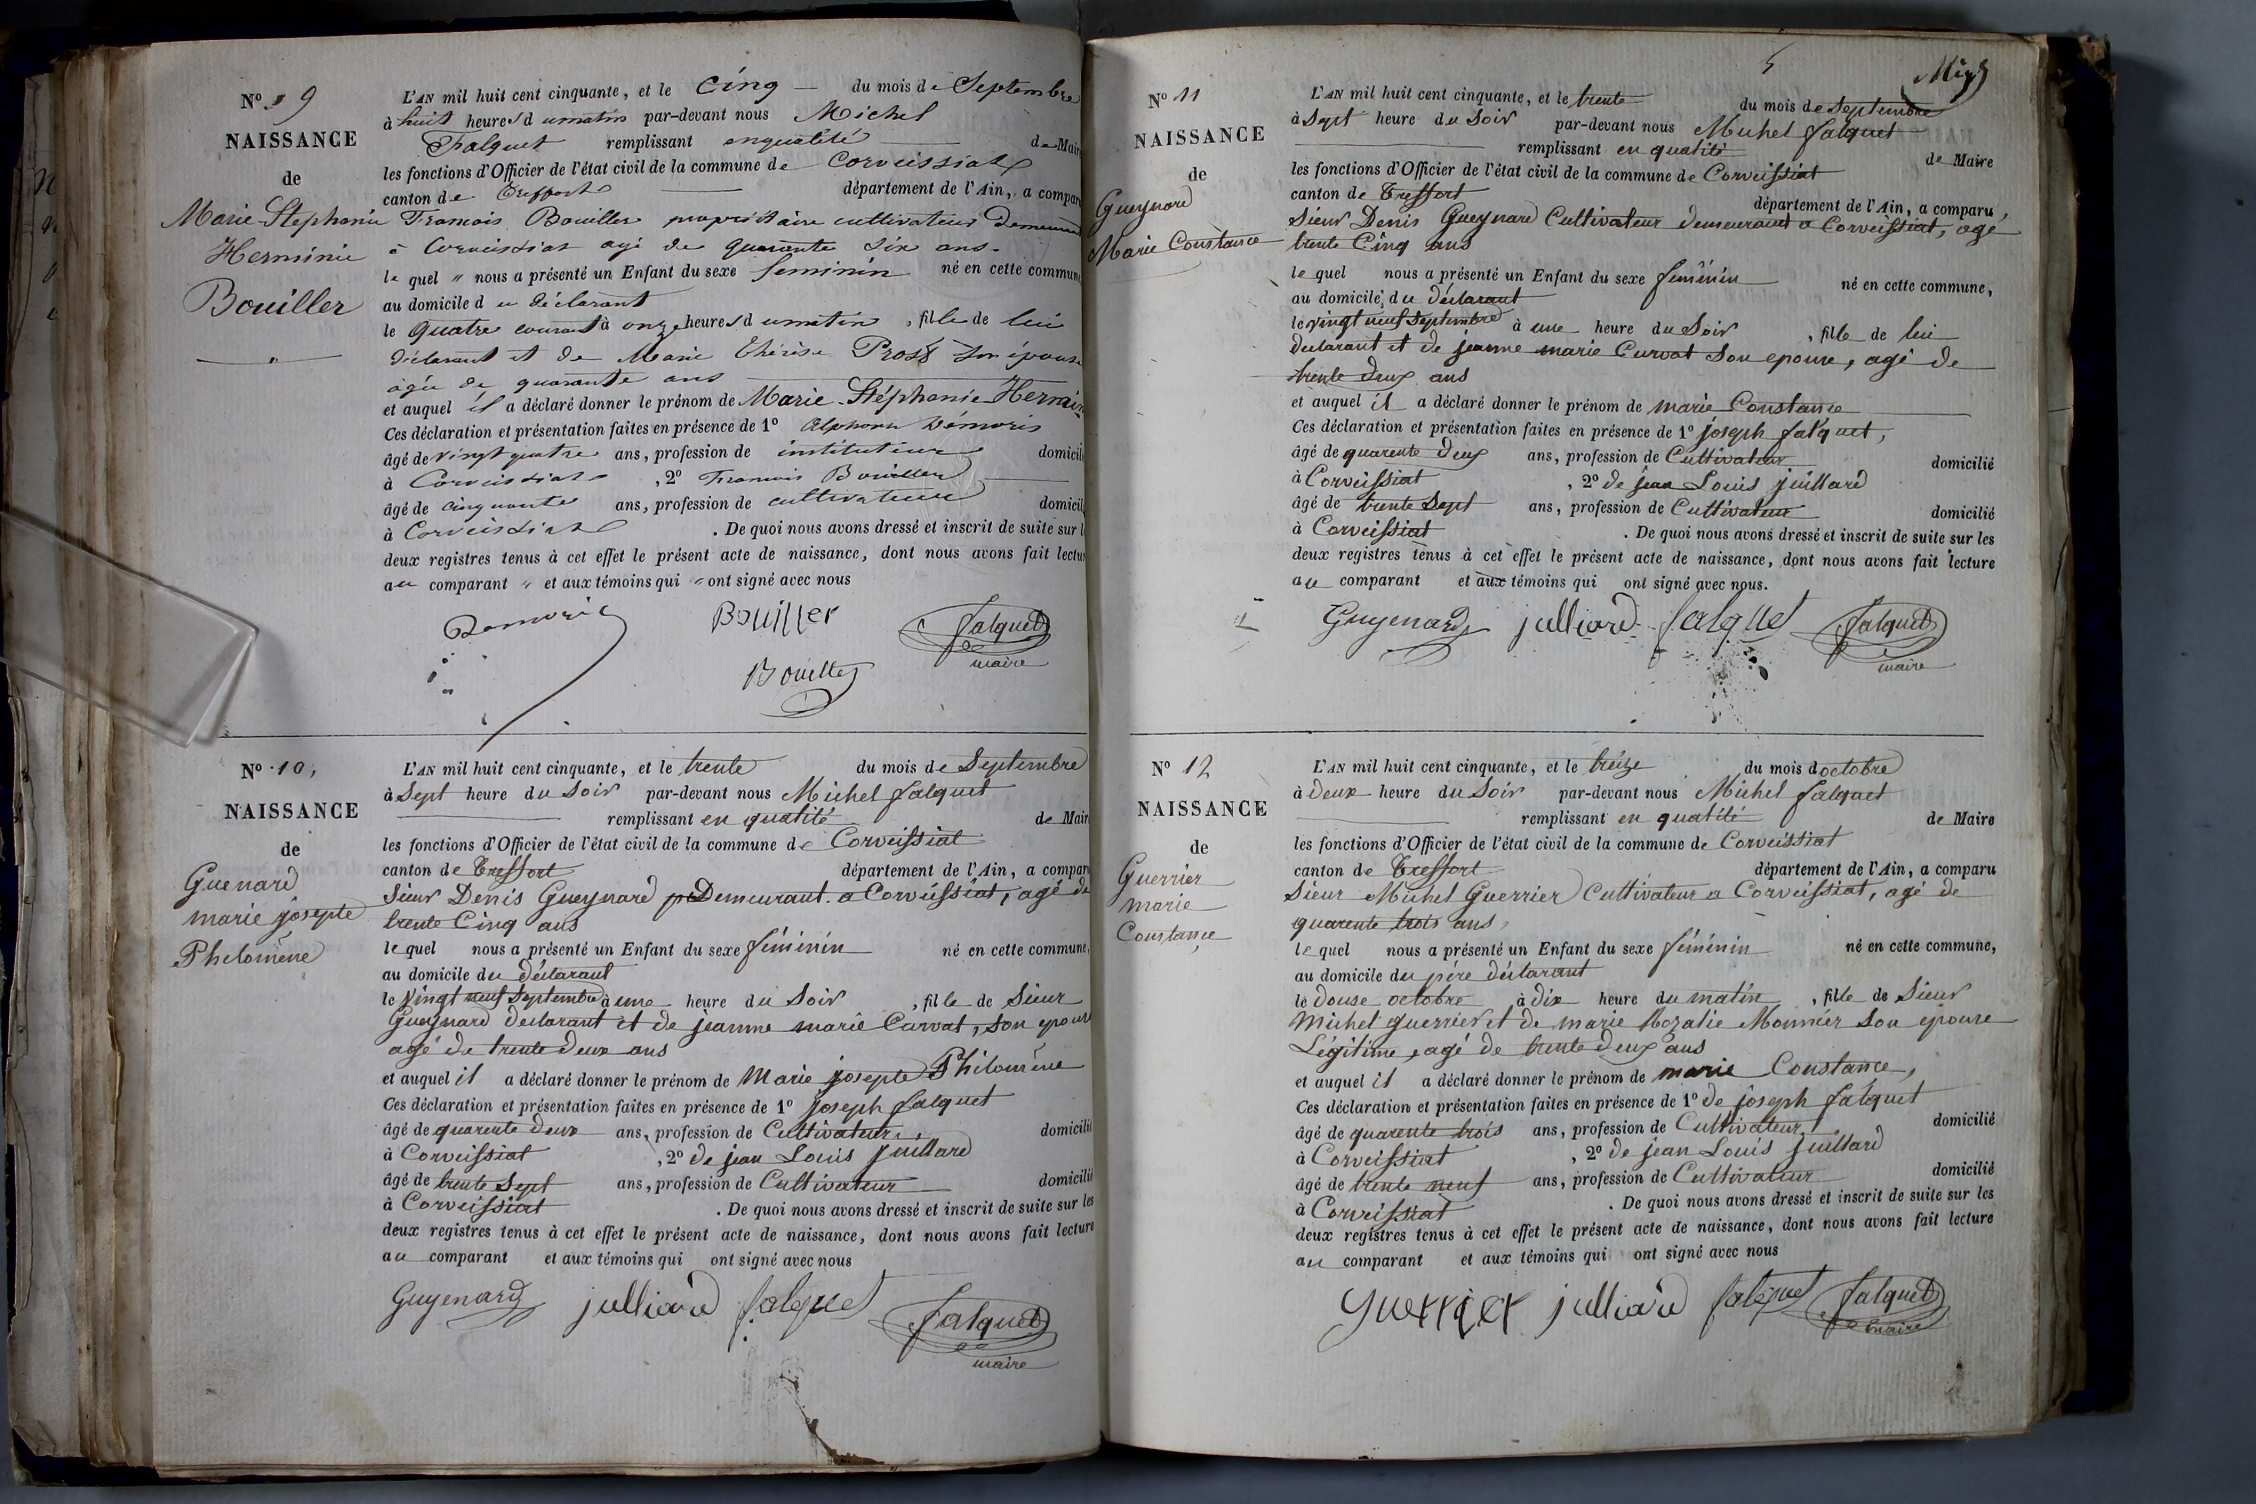 N° 9
NAISSANCE
de
Marie Stephanie
Herminie
Bouiller
L'AN mil huit cent cinquante, et le cinq du mois de Septembre
à huit heures du matin par-devant nous Michel
Falquet remplissant en qualité de Maire
les fonctions d'Officier de l'état civil de la commune de Corveissiat
canton de Treffort département de l'Ain, a comparu
François Bouiller propriétaire cultivateur Demeurant
à Corveissiat agé de quarante six ans.
le quel " nous a présenté un Enfant du sexe feminin né en cette commune
au domicile du déclarant
le quatre courant à onze heures du matin, fille de lui
déclarant et de Marie Thérèse Prost son épouse
agée de quarante ans
et auquel il a déclaré donner le prénom de Marie Stéphanie Hermin
Ces déclaration et présentation faites en présence de 1° Alphonse Démoris
âgé de vingt quatre ans, profession de instituteur domicilié
à Corveissiat, 2° Francois Bouiller
âgé de cinquante ans, profession de cultivateur domicilié
à Corveissiat. De quoi nous avons dressé et inscrit de suite sur les
deux registres tenus à cet effet le présent acte de naissance, dont nous avons fait lecture
au comparant " et aux témoins qui " ont signé avec nous
Demoris Bouiller Falquet
maire
Bouiller
N° 10,
NAISSANCE
de
Guenard
marie josepte
Philomène
L'AN mil huit cent cinquante, et le trente du mois de Septembre
à Sept heure du Soir par-devant nous Michel falquet
remplissant en qualité de Maire
les fonctions d'Officier de l'état civil de la commune de Corveissiat
canton de Treffort département de l'Ain, a comparu
Sieur Denis Gueynard Demeurant a Corveissiat, agé de
trente Cinq ans
le quel nous a présenté un Enfant du sexe féminin né en cette commune,
au domicile du déclarant
le vingt neuf Septembre à une heure du Soir, fille de Sieur
Gueynard declarant et de jeanne marie Curvat, son epouse
agé de trente deux ans
et auquel il a déclaré donner le prénom de Marie josepte Philomène
Ces déclaration et présentation faites en présence de 1° joseph falquet
âgé de quarente deux ans, profession de Cultivateur, domicilié
à Corveissiat, 2° de jean Louis juillard
âgé de trente Sept ans, profession de Cultivateur domicilié
à Corveissiat. De quoi nous avons dressé et inscrit de suite sur les
deux registres tenus à cet effet le présent acte de naissance, dont nous avons fait lecture
au comparant et aux témoins qui ont signé avec nous
Guyenard julliard falquet Falquet
maire
5
N° 11
NAISSANCE
de
Gueynard
Marie Constance
L'AN mil huit cent cinquante, et le trente du mois de Septembre
à Sept heure du Soir par-devant nous Michel falquet
remplissant en qualité de Maire
les fonctions d'Officier de l'état civil de la commune de Corveissiat
canton de Treffort département de l'Ain, a comparu,
Sieur Denis Gueynard Cultivateur demeurant a Corveissiat, agé
trente Cinq ans
le quel nous a présenté un Enfant du sexe feminin né en cette commune,
au domicile du déclarant
le vingt neuf Septembre à une heure du Soir, fille de lui
declarant et de jeanne marie Curvat Son epouse, agé de
trente deux ans
et auquel il a déclaré donner le prénom de marie Constance
Ces déclaration et présentation faites en présence de 1° joseph falquet,
âgé de quarente deux ans, profession de Cultivateur domicilié
à Corveissiat, 2° de jean Louis juillard
âgé de trente Sept ans, profession de Cultivateur domicilié
à Corveissiat. De quoi nous avons dressé et inscrit de suite sur les
deux registres tenus à cet effet le présent acte de naissance, dont nous avons fait lecture
au comparant et aux témoins qui ont signé avec nous.
Guyenard julliard falquet Falquet
maire
N° 12
NAISSANCE
de
Guerrier
marie
Constance
L'AN mil huit cent cinquante, et le treize du mois d octobre
à deux heure du Soir par-devant nous Michel falquet
remplissant en qualité de Maire
les fonctions d'Officier de l'état civil de la commune de Corveissiat
canton de Treffort département de l'Ain, a comparu
Sieur Michel Guerrier Cultivateur a Corveissiat, agé de
quarente trois ans,
le quel nous a présenté un Enfant du sexe féminin né en cette commune,
au domicile du père déclarant
le douse octobre à dix heure du matin, fille de Sieur
Michel guerrier et de marie Rozalie Monnier Son epouse
Légitime, agé de trente deux ans
et auquel il a déclaré donner le prénom de marie Constance,
Ces déclaration et présentation faites en présence de 1° de joseph falquet
âgé de quarente trois ans, profession de Cultivateur domicilié
à Corveissiat, 2° de jean Louis juillard
âgé de trente neuf ans, profession de Cultivateur domicilié
à Corveissiat. De quoi nous avons dressé et inscrit de suite sur les
deux registres tenus à cet effet le présent acte de naissance, dont nous avons fait lecture
au comparant et aux témoins qui ont signé avec nous
guerrier julliard falquet Falquet
maire